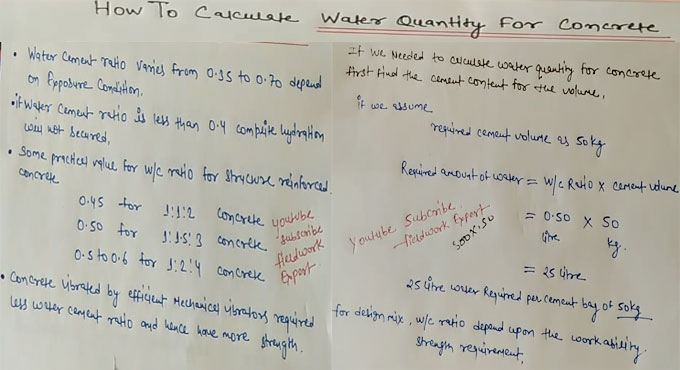 How To Calculate Water Quantity For Concrete
• Water Cement ratio varies from 0.35 to 0.70 depend
on Exposure Condition.
• if Water Cement ratio is less than 0.4 complite hydration
will not secured,
• Some practical value for w/c ratio for structure reinforced
concrete
0.45 for 1:1:2 concrete
0.50 for 1:1.5:3 concrete
0.5 to 0.6 for 1:2:4 concrete
youtube
subscribe
fieldwork
Expert
• Concrete vibrated by efficient Mechanical vibrators required
less water cement ratio and hence have more strength.
If we Needed to calculate water quantity for concrete
first find the cement content for the volume,
if we assume
required cement volume as 50kg
Required amount of water = W/c Ratio x cement volume
= 0.50 x 50
litre kg.
= 25 litre
Youtube Subscribe
fieldwork Expert
500x.50
25 litre water Required per cement bag of 50kg
for design mix, w/c ratio depend upon the workability.
strength requirement,